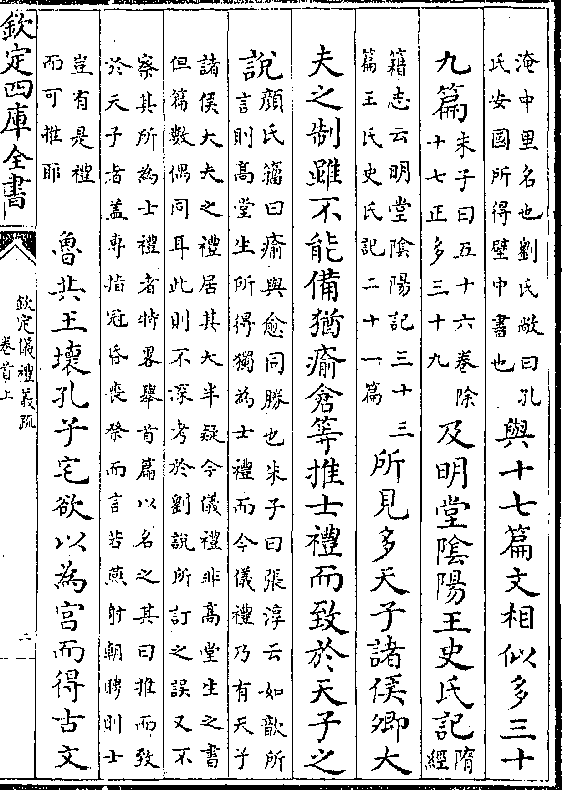 淹中里名也劉氏敞曰孔
氏安國所得壁中書也
與十七篇文相似多三十
九篇
朱子曰五十六卷除
十七正多三十九
及明堂陰陽王史氏記
隋
經
籍志云明堂陰陽記三十三
篇王氏史氏記二十一篇
所見多天子諸侯卿大
夫之制雖不能備猶瘉倉等推士禮而致於天子之
說
顔氏籀曰瘉與愈同勝也朱子曰張淳云如歆所
言則高堂生所得獨為士禮而今儀禮乃有天子
諸侯大夫之禮居其大半疑今儀禮非高堂生之書
但篇數偶同耳此則不深考於劉說所訂之誤又不
察其所為士禮者特畧舉首篇以名之其曰推而致
於天子者盖專指冠昏喪祭而言若燕射朝聘則士
豈有是禮
而可推耶
魯共王壞孔子宅欲以為宮而得古文
欽定四庫全書
欽定儀禮義疏
卷首上
二